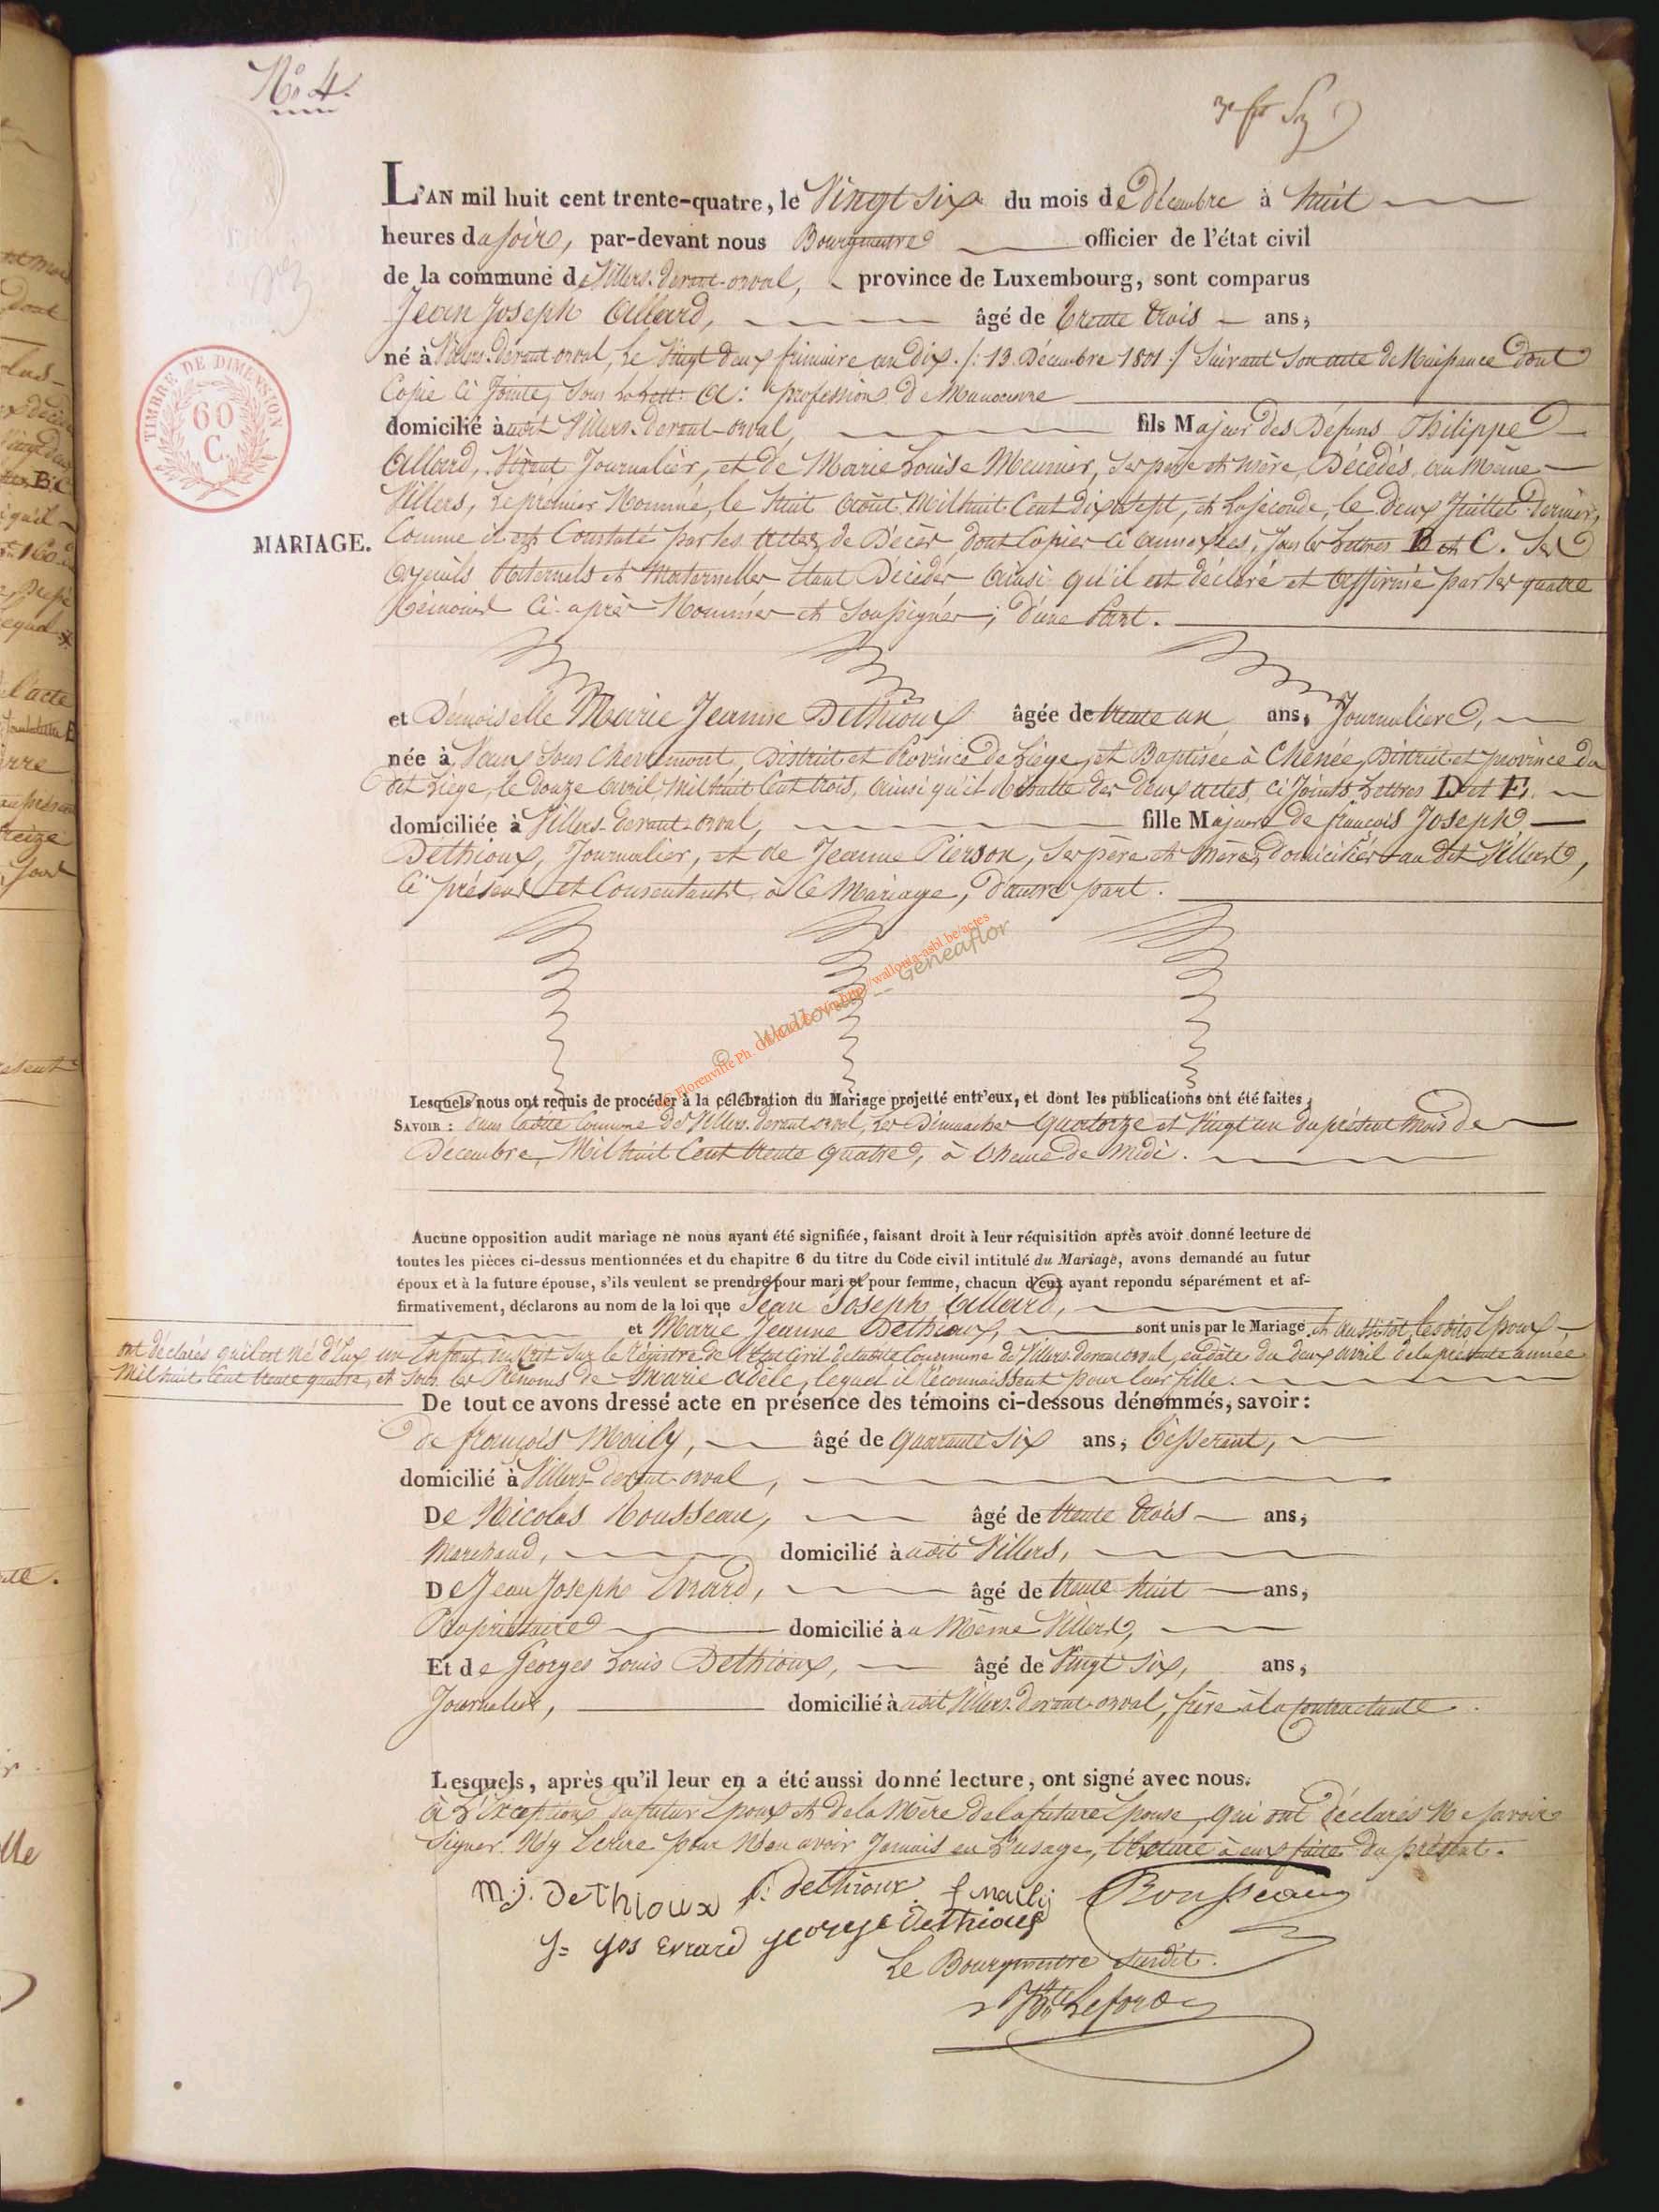 N° 4.
L'AN mil huit cent trente-quatre, le Vingt Six du mois de Décembre à huit
heures du soir, par-devant nous Bourgmestre officier de l'état civil
de la commune de Villers-devant-orval, province de Luxembourg, sont comparus
Jean Joseph Allard, âgé de trente trois ans,
né à Villers-devant orval, le Vingt deux frimaire an dix ./: 13. Décembre 1801 ./ Suivant Son acte de Naissance dont
Copie Ci Jointe, Sous la lett: A: profession De Manoeuvre
domicilié audit Villers-devant-orval, fils Majeur des Défuns Philippe
Allard, Vivant Journalier, et de Marie Louise Meunier, Ses père et mère, Décédés, au Même
Villers, Le premier Nommé, le huit août Mil huit Cent Dix Sept, et La Seconde, le Deux Juillet dernier,
Comme il est Constaté par les actes de Décès dont Copies ci annexées, Sous les lettres B et C. Ses
ayeuls Paternels et Maternelles étant Décédés ainsi qu'il est déclaré et affirmé par les quatre
témoins Ci-après Nommés et Soussignés; D'une Part.
MARIAGE.
TIMBRE DE DIMENSION
60
C.
et Démoiselle Marie Jeanne Dethioux âgée de trente un ans, Journaliere,
née à Vaux Sous Chevremont, District et Province de Liège, et Baptisée à Chênée, District et province du
dit Liège, le douze avril, mil huit Cent trois, ainsi qu'il Résulte des deux actes ci Joints Lettres D et E.
domiciliée à Villers-devant-orval, fille Majeure de françois Joseph
Dethioux, Journalier, et de Jeanne Pierson, Ses père et mère, domiciliés au dit Villers,
Ci présens et Consentants à Ce Mariage, D'autre part.
Lesquels nous ont requis de procéder à la célébration du Mariage projetté entr'eux, et dont les publications ont été faites,
SAVOIR : Dans ladite Commune de Villers-devant orval, Les Dimanches Quatorze et Vingt un du présent mois de
Décembre, Mil huit Cent trente quatre, à l'heure de Midi.
Aucune opposition audit mariage ne nous ayant été signifiée, faisant droit à leur réquisition après avoir donné lecture de
toutes les pièces ci-dessus mentionnées et du chapitre 6 du titre du Code civil intitulé du Mariage, avons demandé au futur
époux et à la future épouse, s'ils veulent se prendre pour mari et pour femme, chacun d'eux ayant repondu séparément et af-
firmativement, déclarons au nom de la loi que Jean Joseph Allard,
et Marie Jeanne Dethioux, sont unis par le Mariage, et aussitôt, lesdits Epoux
ont déclarés qu'il est Né d'Eux un Enfant inscrit Sur le Registre de l'Etat Civil de ladite Commune de Villers-devant orval, en date du deux avril de la présente année
Mil huit Cent trente quatre, et Sous les Prénoms de Marie adèle, lequel il Reconnaissent pour leur fille.
De tout ce avons dressé acte en présence des témoins ci-dessous dénommés, savoir:
de françois Mailly, âgé de quarante Six ans, Tisserant,
domicilié à Villers-devant-orval,
De Nicolas Rousseau, âgé de trente trois ans,
Marchand, domicilié à udit Villers,
De Jean Joseph Evrard, âgé de trente huit ans,
Propriétaire domicilié à u Même Villers,
Et de Georges Louis Dethioux, âgé de Vingt Six, ans,
Journalier, domicilié à udit Villers-devant-orval, frère à la Contractante
Lesquels, après qu'il leur en a été aussi donné lecture, ont signé avec nous.
à L'Exception du futur Epoux et de la Mère de la future Epouse, qui ont déclarés Ne savoir
Signer N'y Ecrire pour N'en avoir Jamais eu L'usage, Lecture à eux faite du présent.
M.j. DeThioux f. dethioux f mailly Rousseau
J= Jos Evrard george Dethioux
Le Bourgmestre Susdit.
© Wallonia - Geneaflor